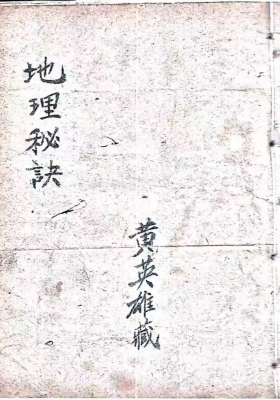 地理秘訣
黄英雄藏